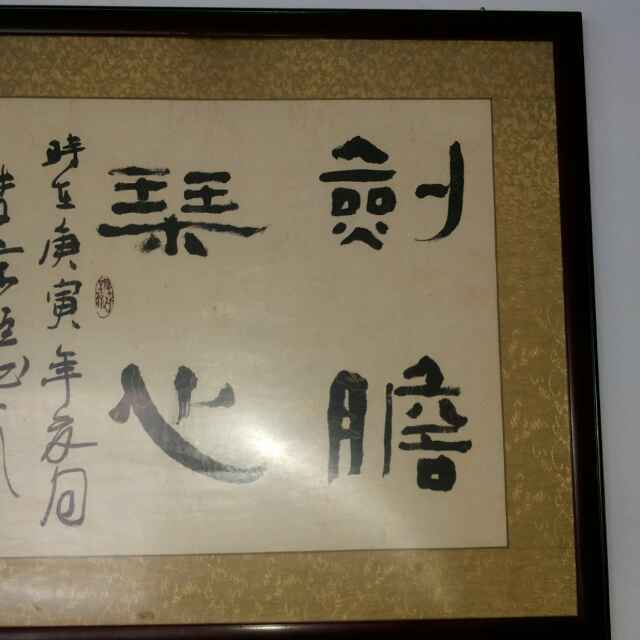 劍膽
琹心
時在庚寅年夏月